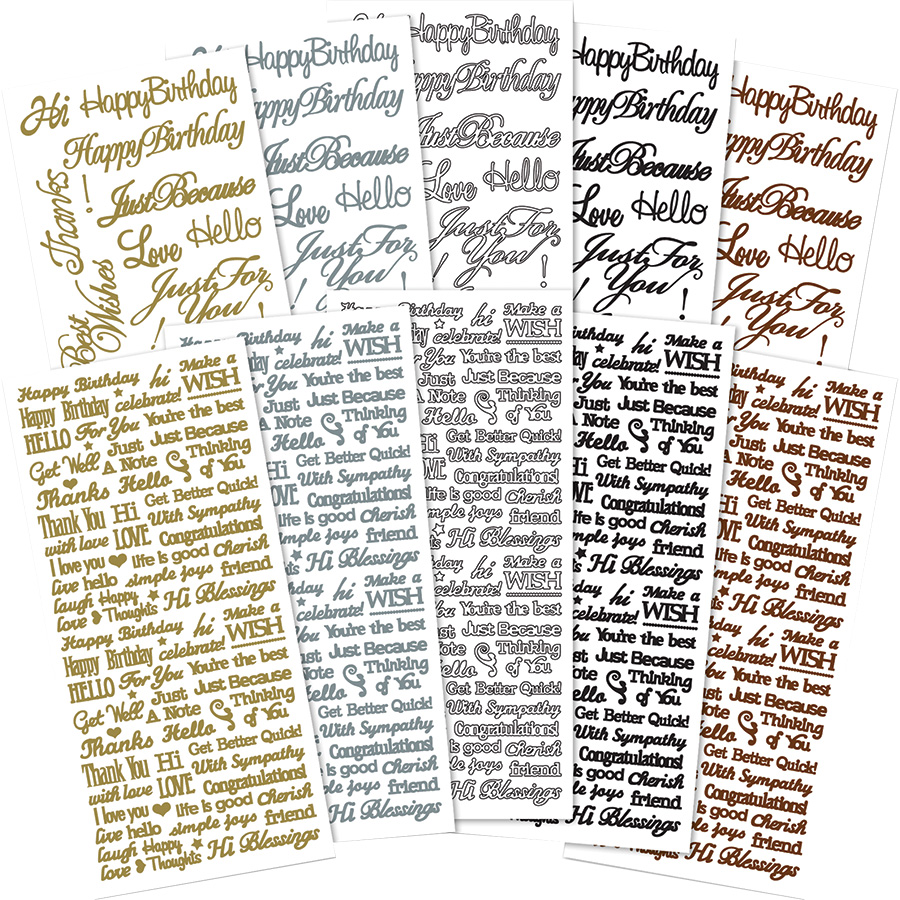 Hi HappyBirthday
HappyBirthday
Thanks !
JustBecause
Love Hello
Best Wishes
Just For
You
HappyBirthday
HappyBirthday
JustBecause
Love Hello
Just For
You !
HappyBirthday
HappyBirthday
JustBecause
Love Hello
Just For
You !
HappyBirthday
HappyBirthday
JustBecause
Love Hello
Just For
You !
HappyBirthday
HappyBirthday
JustBecause
Love Hello
Just For
You
Happy Birthday hi Make a
Happy Birthday celebrate! WISH
HELLO For You You're the best
Get Well Just Just Because
A Note Thinking
Thanks Hello of You
Thank You Hi Get Better Quick!
with love LOVE With Sympathy
I love you Congratulations!
live hello life is good Cherish
laugh Happy simple joys friend
love Thoughts Hi Blessings
Happy Birthday hi Make a
Happy Birthday celebrate! WISH
HELLO For You You're the best
Get Well Just Just Because
A Note Thinking
Thanks Hello of You
Thank You Hi Get Better Quick!
with love LOVE With Sympathy
I love you Congratulations!
live hello life is good Cherish
laugh Happy simple joys friend
love Thoughts Hi Blessings
Birthday hi Make a
celebrate! WISH
For You You're the best
Just Just Because
A Note Thinking
Hello of You
Hi Get Better Quick!
With Sympathy
Congratulations!
life is good Cherish
simple joys friend
Hi Blessings
hi Make a
celebrate! WISH
You're the best
Just Because
Note Thinking
Hello of You
Get Better Quick!
With Sympathy
Congratulations!
is good Cherish
simple joys friend
Hi Blessings
Birthday hi Make a
celebrate! WISH
You You're the best
Just Just Because
A Note Thinking
Hello of You
Hi Get Better Quick!
With Sympathy
Congratulations!
life is good Cherish
simple joys friend
Hi Blessings
hi Make a
celebrate! WISH
You're the best
Just Because
Thinking
Hello of You
Get Better Quick!
With Sympathy
Congratulations!
is good Cherish
joys friend
Hi Blessings
Birthday hi Make a
celebrate! WISH
You You're the best
Just Just Because
A Note Thinking
Hello of You
Hi Get Better Quick!
With Sympathy
Congratulations!
life is good Cherish
simple joys friend
Hi Blessings
hi Make a
celebrate! WISH
You You're the best
Just Just Because
A Note Thinking
Hello of You
Hi Get Better Quick!
With Sympathy
Congratulations!
life is good Cherish
simple joys friend
Thoughts Hi Blessings
hi Make a
celebrate! WISH
You You're the best
Just Just Because
A Note Thinking
Hello of You
Hi Get Better Quick!
With Sympathy
Congratulations!
life is good Cherish
simple joys friend
Hi Blessings
hi Make a
celebrate! WISH
You You're the best
Just Just Because
A Note Thinking
Hello of You
Hi Get Better Quick!
With Sympathy
Congratulations!
life is good Cherish
simple joys friend
Thoughts Hi Blessings